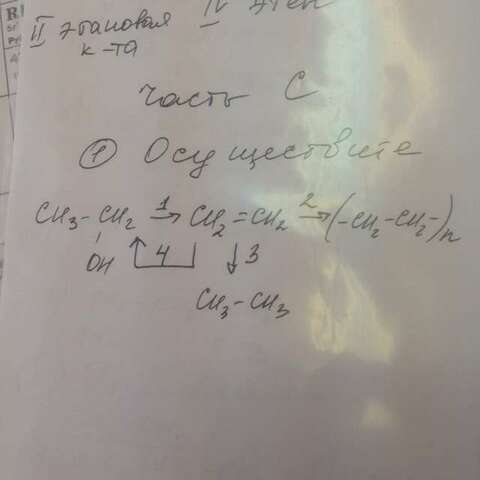 II этановая IV этен
к-та
часть С
① Осуществите
CH₃-CH₂ 1→ CH₂=CH₂ 2→ (-CH₂-CH₂-)n
OH 4 3
CH₃-CH₃